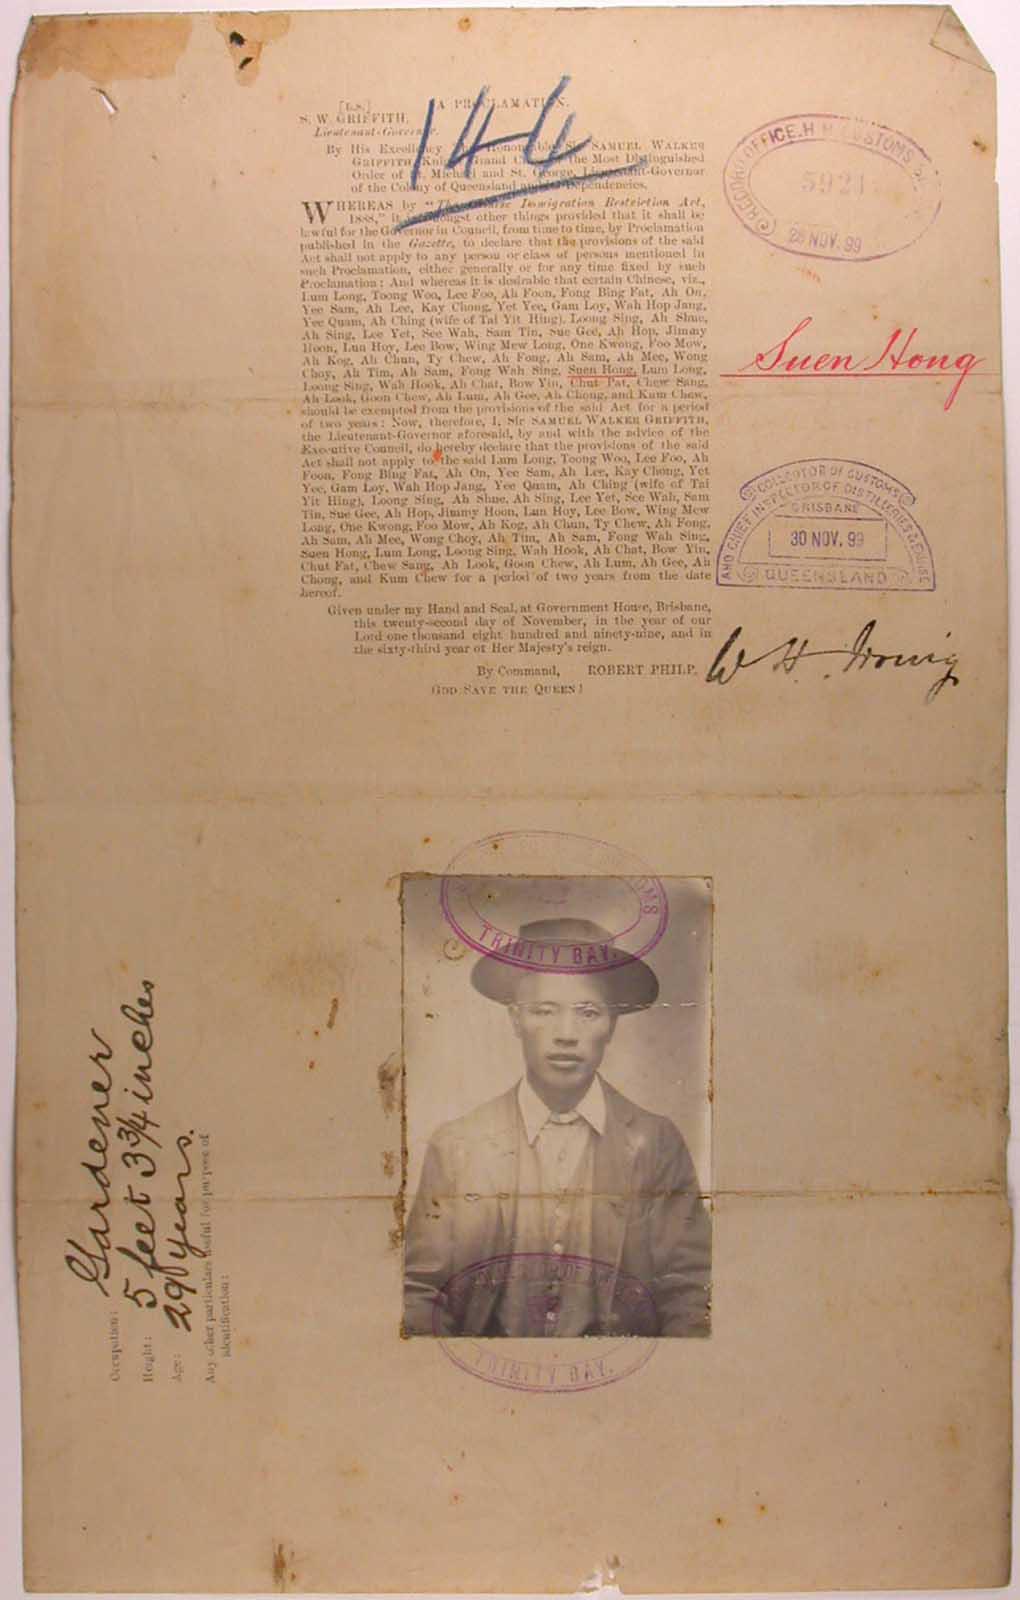 146
[L.S.] A PROCLAMATION.
S. W. GRIFFITH,
Lieutenant-Governor.
By His Excellency Honourable Sir SAMUEL WALKER
GRIFFITH, Knight Grand of the Most Distinguished
Order of St. Michael and St. George, Lieutenant-Governor
of the Colony of Queensland and its Dependencies.
WHEREAS by "The Chinese Immigration Restriction Act,
1888," it is amongst other things provided that it shall be
lawful for the Governor in Council, from time to time, by Proclamation
published in the Gazette, to declare that the provisions of the said
Act shall not apply to any person or class of persons mentioned in
such Proclamation, either generally or for any time fixed by such
Proclamation: And whereas it is desirable that certain Chinese, viz.,
Lum Long, Toong Woo, Lee Foo, Ah Foon, Fong Bing Fat, Ah On,
Yee Sam, Ah Lee, Kay Chong, Yet Yee, Gam Loy, Wah Hop Jang,
Yee Quam, Ah Ching (wife of Tai Yit Hing), Loong Sing, Ah Shue,
Ah Sing, Lee Yet, See Wah, Sam Tin, Sue Gee, Ah Hop, Jimmy
Hoon, Lun Hoy, Lee Bow, Wing Mew Long, One Kwong, Foo Mow,
Ah Kog, Ah Chun, Ty Chew, Ah Fong, Ah Sam, Ah Mee, Wong
Choy, Ah Tim, Ah Sam, Fong Wah Sing, Suen Hong, Lum Long,
Loong Sing, Wah Hook, Ah Chat, Bow Yin, Chut Fat, Chew Sang,
Ah Look, Goon Chew, Ah Lum, Ah Gee, Ah Chong, and Kum Chew,
should be exempted from the provisions of the said Act for a period
of two years: Now, therefore, I, Sir SAMUEL WALKER GRIFFITH,
the Lieutenant-Governor aforesaid, by and with the advice of the
Executive Council, do hereby declare that the provisions of the said
Act shall not apply to the said Lum Long, Toong Woo, Lee Foo, Ah
Foon, Fong Bing Fat, Ah On, Yee Sam, Ah Lee, Kay Chong, Yet
Yee, Gam Loy, Wah Hop Jang, Yee Quam, Ah Ching (wife of Tai
Yit Hing), Loong Sing, Ah Shue, Ah Sing, Lee Yet, See Wah, Sam
Tin, Sue Gee, Ah Hop, Jimmy Hoon, Lun Hoy, Lee Bow, Wing Mew
Long, One Kwong, Foo Mow, Ah Kog, Ah Chun, Ty Chew, Ah Fong,
Ah Sam, Ah Mee, Wong Choy, Ah Tim, Ah Sam, Fong Wah Sing,
Suen Hong, Lum Long, Loong Sing, Wah Hook, Ah Chat, Bow Yin,
Chut Fat, Chew Sang, Ah Look, Goon Chew, Ah Lum, Ah Gee, Ah
Chong, and Kum Chew for a period of two years from the date
hereof.
Given under my Hand and Seal, at Government House, Brisbane,
this twenty-second day of November, in the year of our
Lord one thousand eight hundred and ninety-nine, and in
the sixty-third year of Her Majesty's reign.
By Command, ROBERT PHILP.
GOD SAVE THE QUEEN!
RECORD OFFICE. H. M. CUSTOMS
5921
28 NOV. 99
Suen Hong
COLLECTOR OF CUSTOMS
AND CHIEF INSPECTOR OF DISTILLERIES & EXCISE
BRISBANE
30 NOV. 99
QUEENSLAND
W H Irving
TRINITY BAY.
COLLECTOR OF CUSTOMS
TRINITY BAY.
Occupation: Gardener
Height: 5 feet 3 3/4 inches
Age: 29 years.
Any other particulars useful for purpose of
identification: